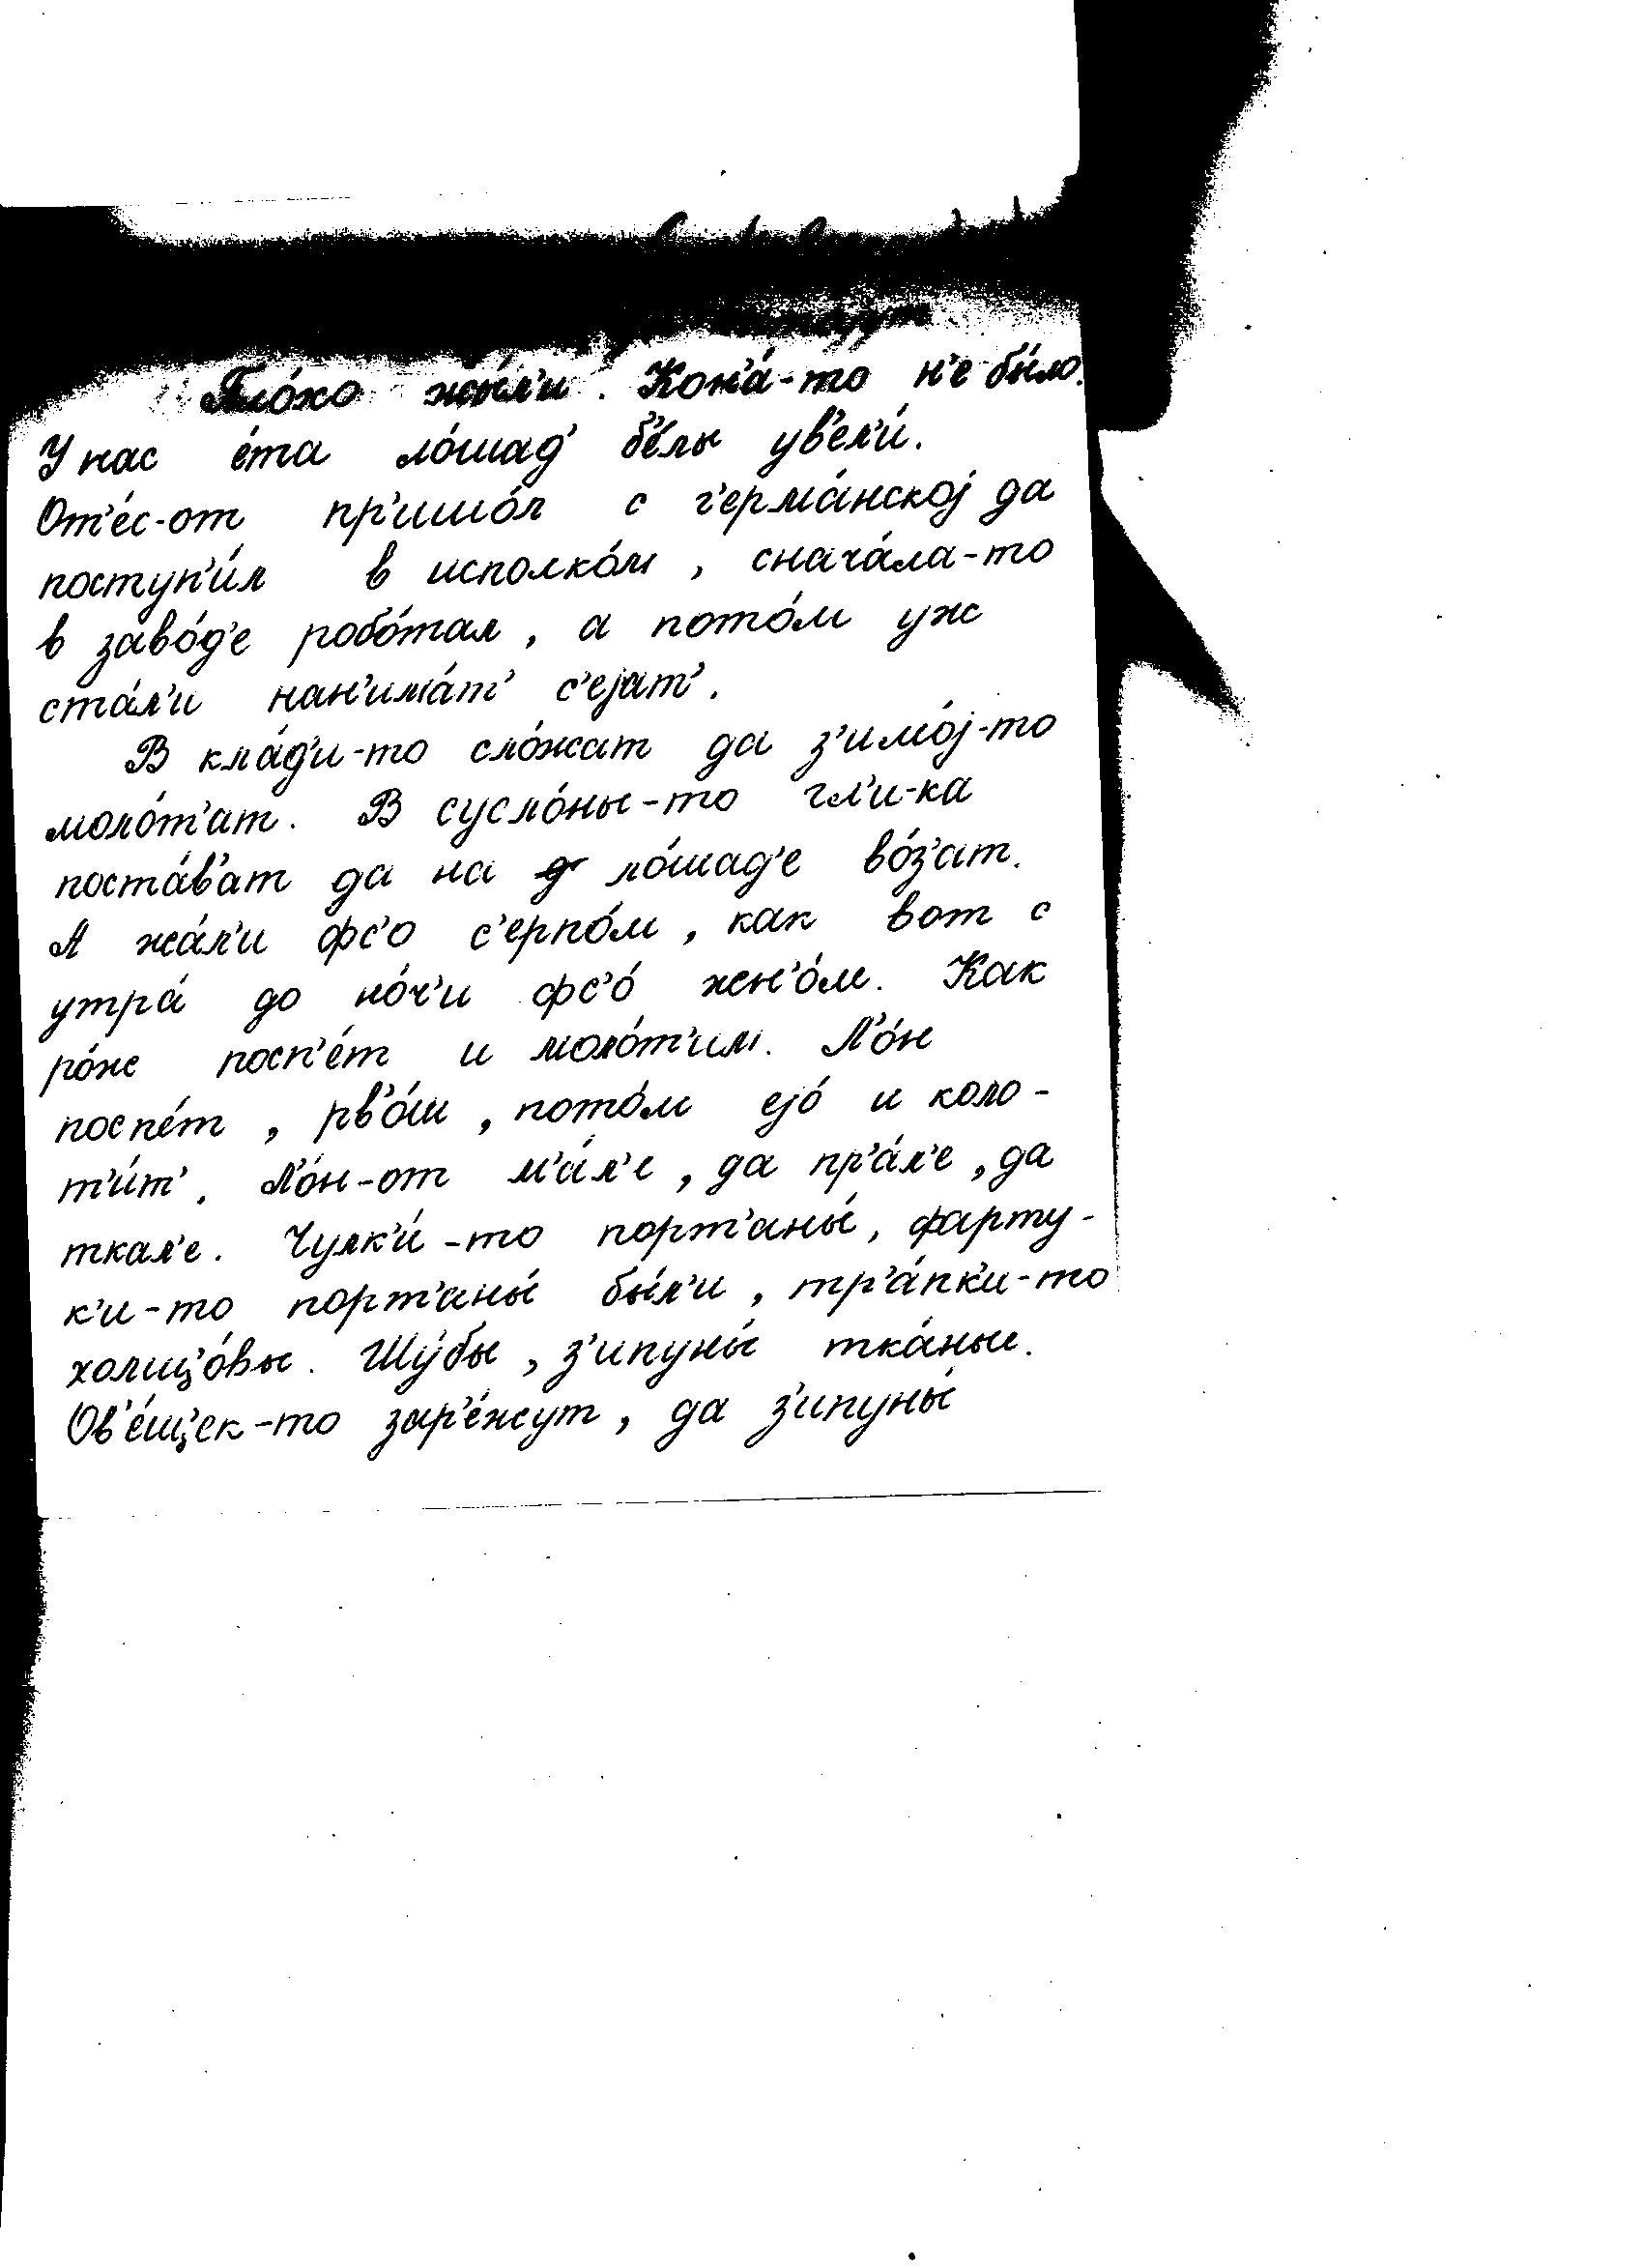 Пло́хо жы́л'и. Кон'а́-то н'е бы́ло.
У нас е́та ло́шад' б'е́лы ув'ел'и́.
От'е́с-от пр'ишо́л с г'ерма́нскоj да
поступ'и́л в исполко́м, снача́ла-то
в заво́д'е робо́тал, а пото́м уж
ста́л'и нан'има́т' с'еjат'.
В кла́д'и-то сло́жат да з'имо́j-то
моло́т'ат. В сусло́ны-то гл'и-ка
поста́в'ат да на ло́шад'е во́з'ат.
А жа́л'и фс'о с'ерпо́м, как вот с
утра́ до но́ч'и фс'о́ жн'о́м. Как
ро́ж посп'е́т и моло́т'им. Л'о́н
поспе́т, рв'о́ш, пото́м еjо́ и коло-
т'и́т'. Л'о́н-от м'а́л'е, да пр'а́л'е, да
ткал'е. Чулк'и́-то порт'аны́, фарту-
к'и-то порт'аны́ бы́л'и, тр'а́пк'и-то
холщ'о́вы. Шу́бы, з'ипуны́ тка́ные.
Ов'е́щ'ек-то зар'е́жут, да з'ипуны́